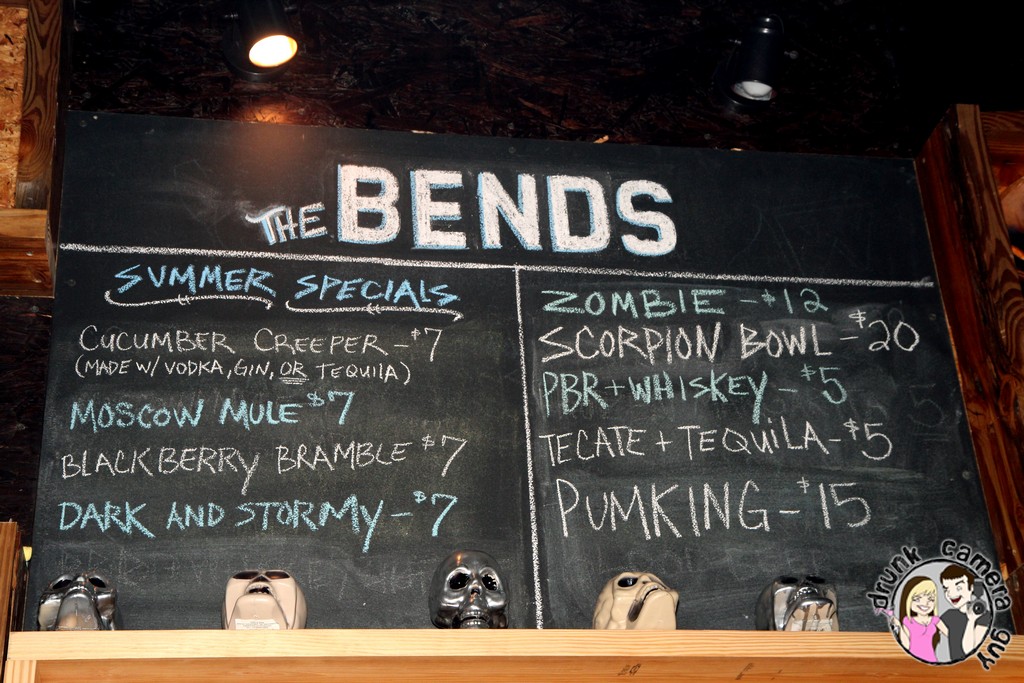 THE BENDS
SUMMER SPECIALS
CUCUMBER CREEPER - $7
(MADE W/ VODKA, GIN, OR TEQUILA)
MOSCOW MULE $7
BLACKBERRY BRAMBLE $7
DARK AND STORMY - $7
ZOMBIE - $12
SCORPION BOWL - $20
PBR + WHISKEY - $5
TECATE + TEQUILA - $5
PUMKING - $15
drunk camera guy